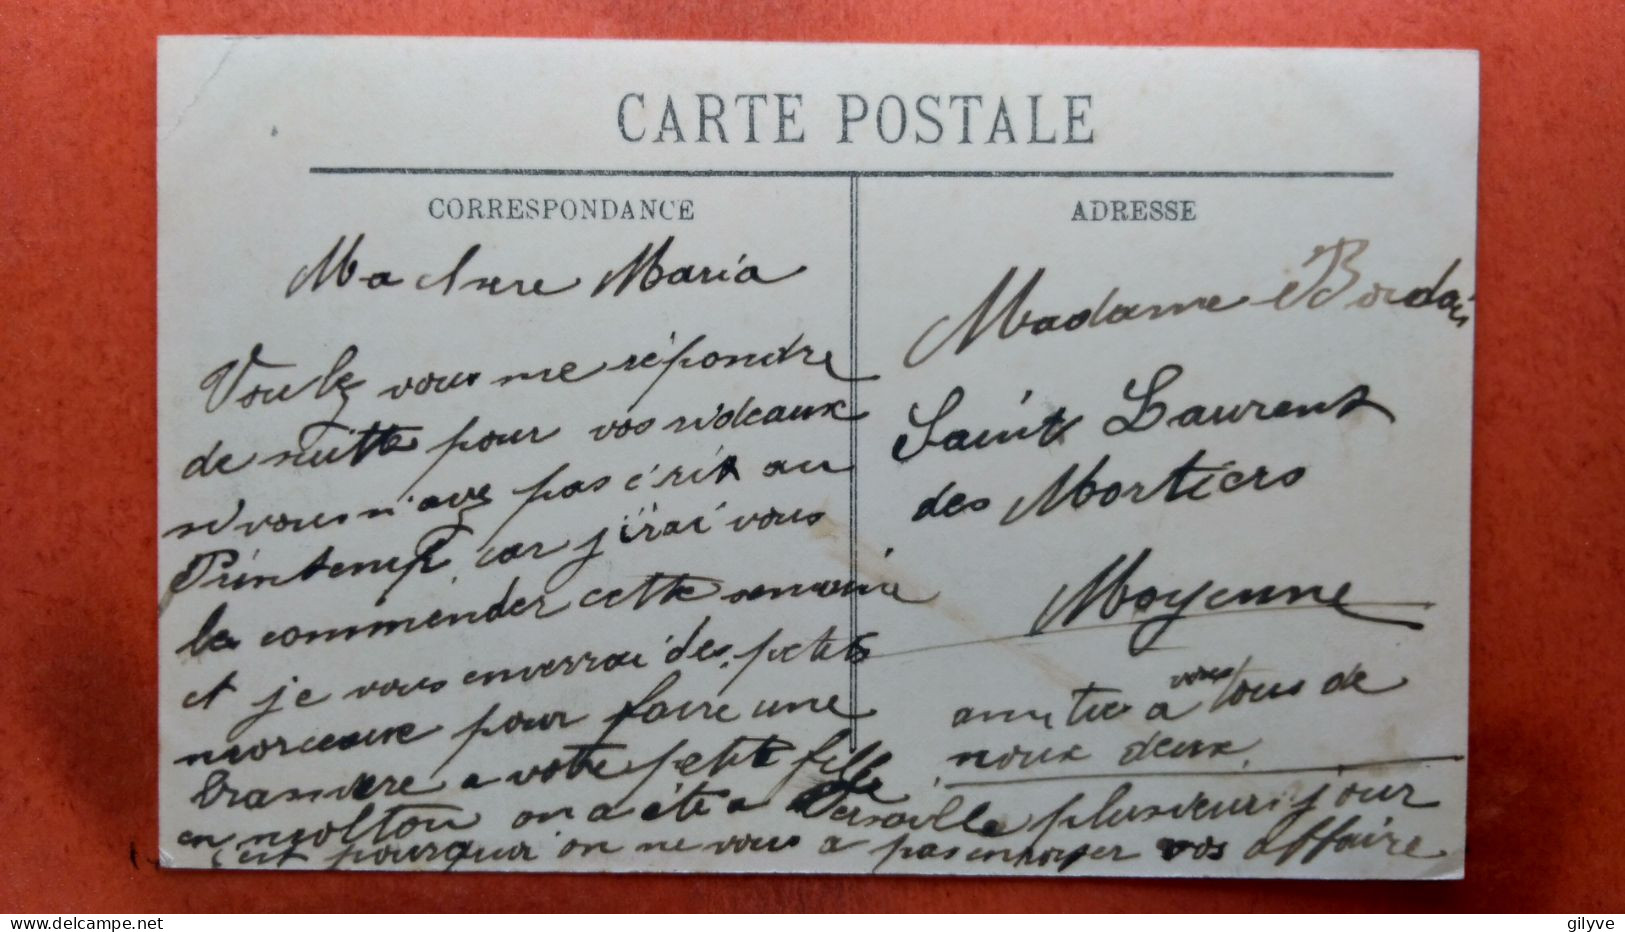 CARTE POSTALE
CORRESPONDANCE
Ma chere Maria
Voulez vous me répondre
de suitte pour vos rideaux
si vous n'avez pas écrit au
Printemps car j'irai vous
la commender cette semaine
et je vous enverrai des petits
morceaux pour faire une
brassiere a votre petite fille
en molton on a été a Versaille plusieurs jour
c'est pourquoi on ne vous a pas envoyer vos affaire
ADRESSE
Madame Bordais
Saint Laurent
des Mortiers
Mayenne
amitiés a vous tous de
nous deux
gilyve